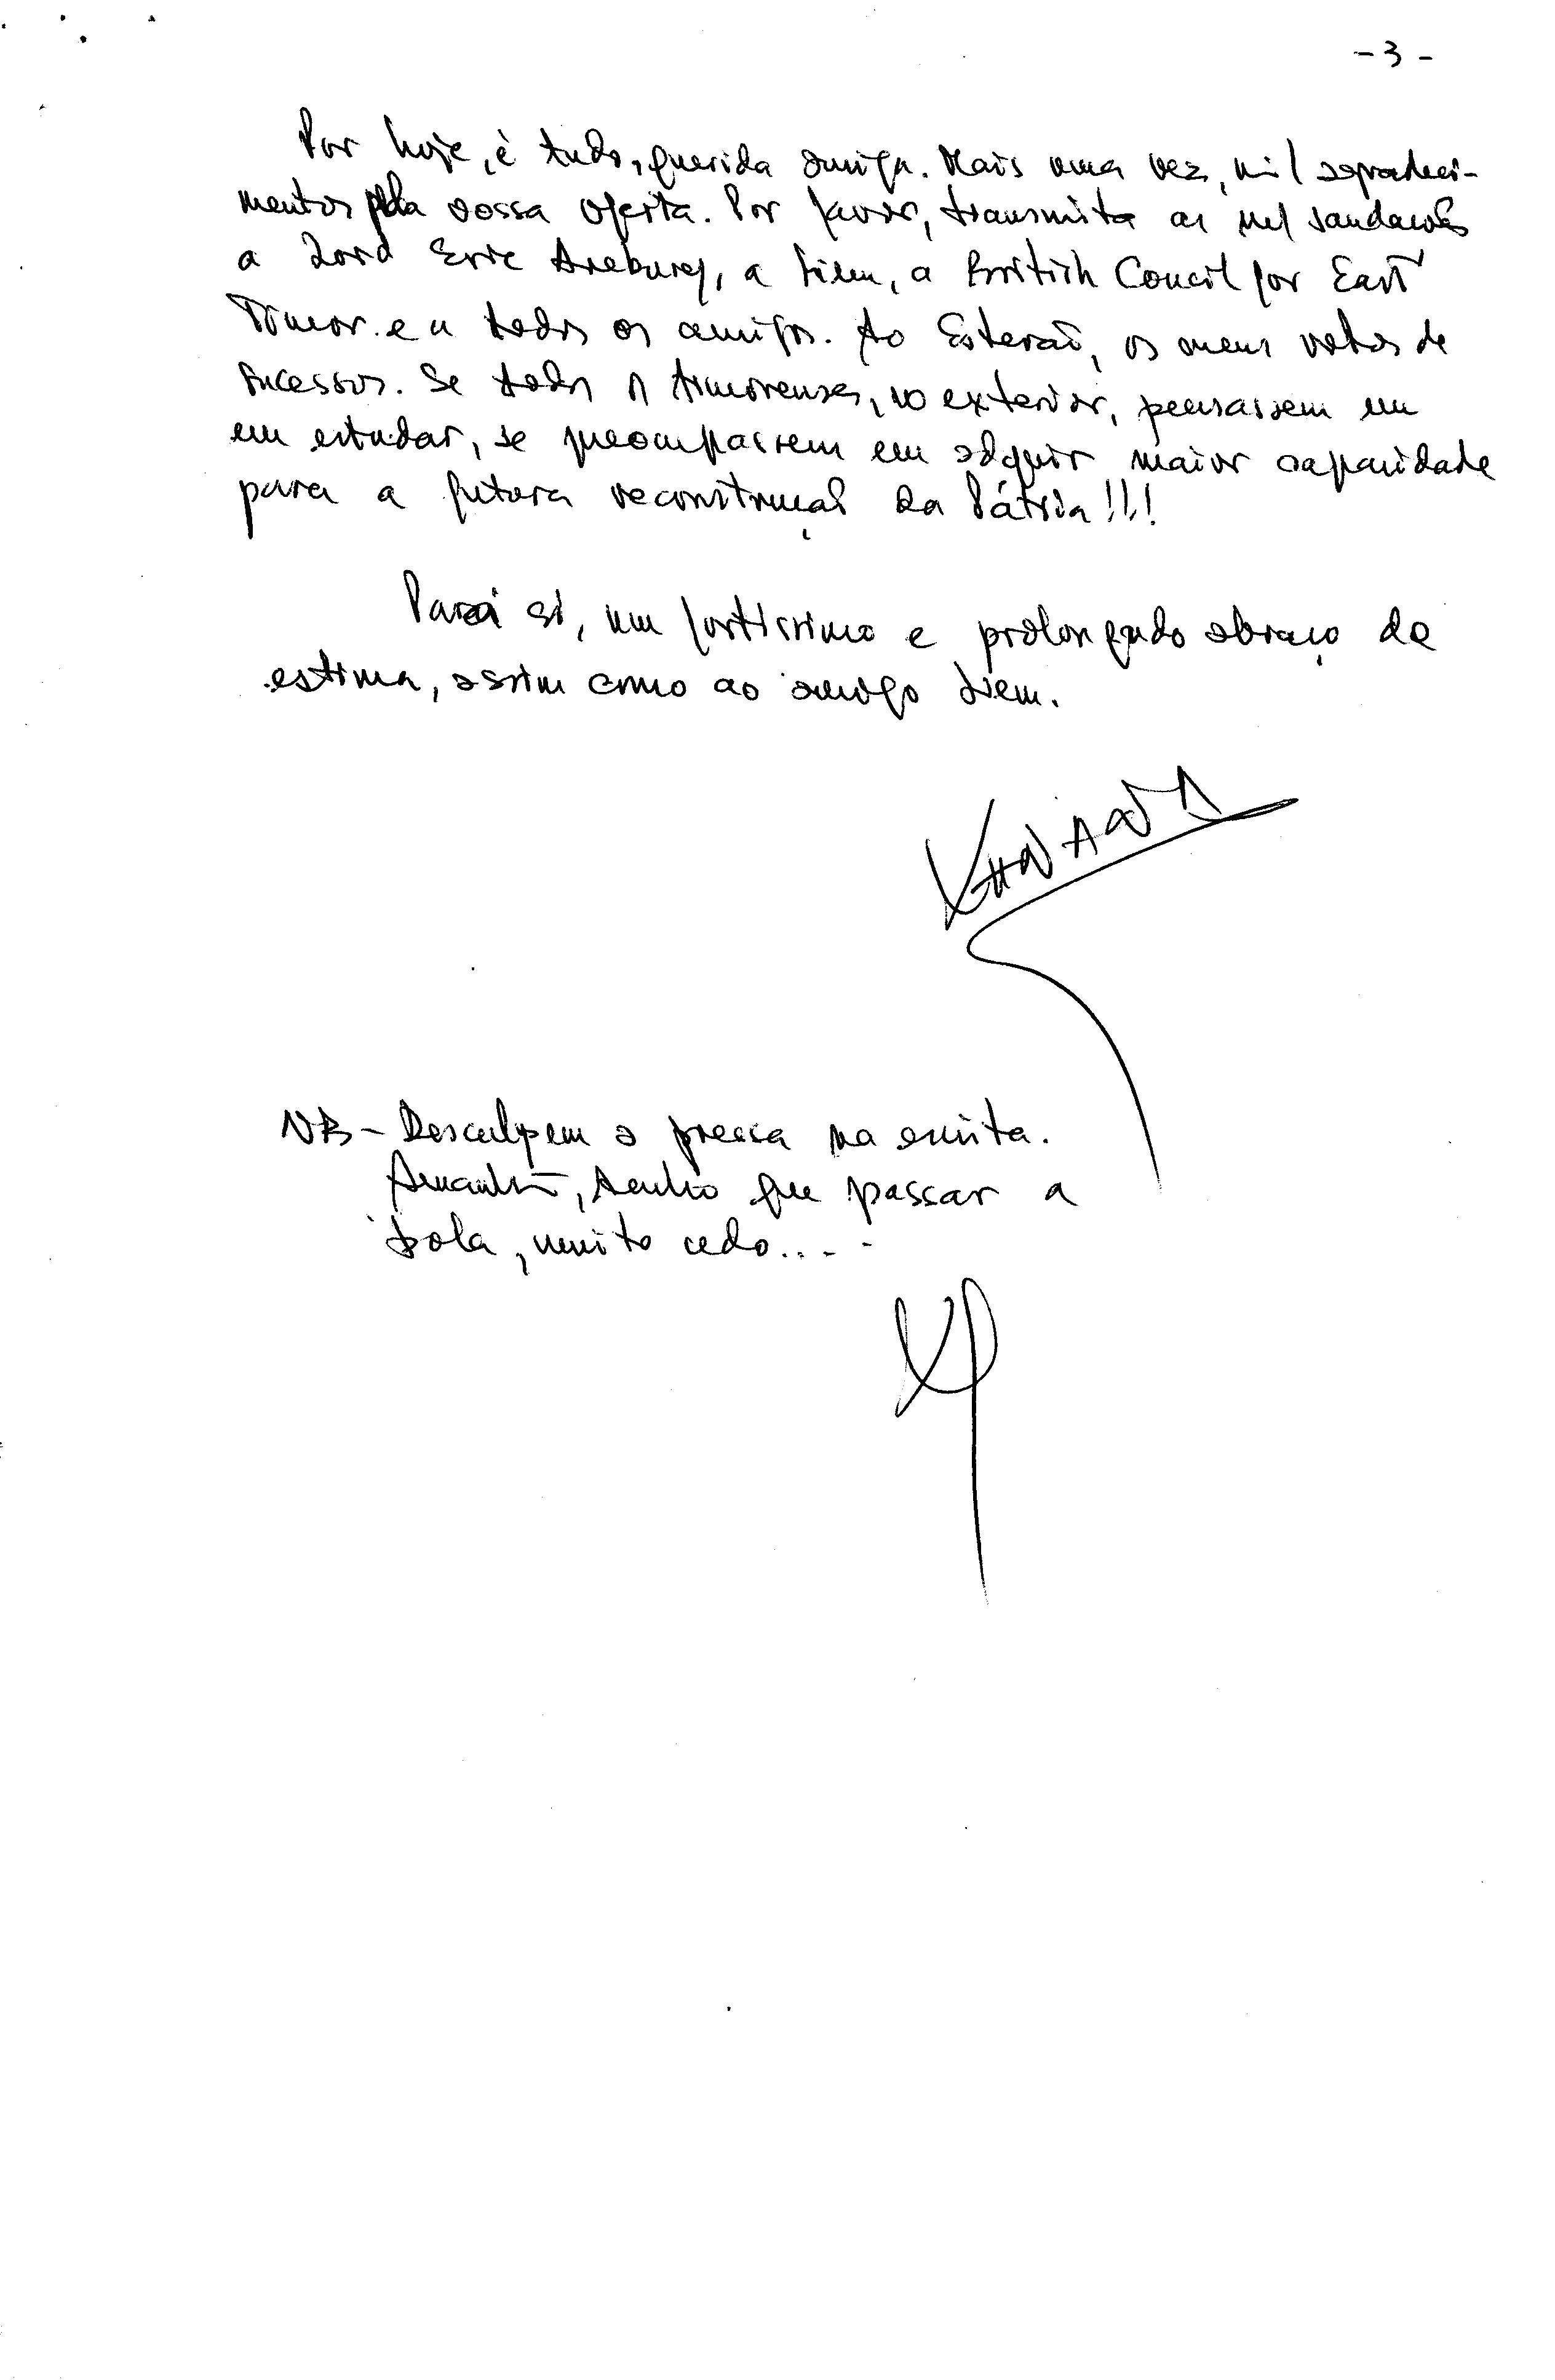 - 3 -
Por hoje, é tudo, querida amiga. Mais uma vez, mil agradeci-
mentos pela vossa oferta. Por favor, transmita as saudações
a Lord Eric Avebury, a Siem, a British Concil for East
Timor e a todos os amigos. Ao Estevão, os meus votos de
sucessos. Se todos os timorenses, no exterior, pensassem em
em estudar, se preocupassem em adquir maior capacidade
para a futura reconstrução da Pátria!!!
Para si, um fortíssimo e prolongado abraço de
estima, assim como ao amigo Siem.
XANANA
NB - Desculpem a pressa na escrita.
Amanhã, tenho que passar a
bola, muito cedo....